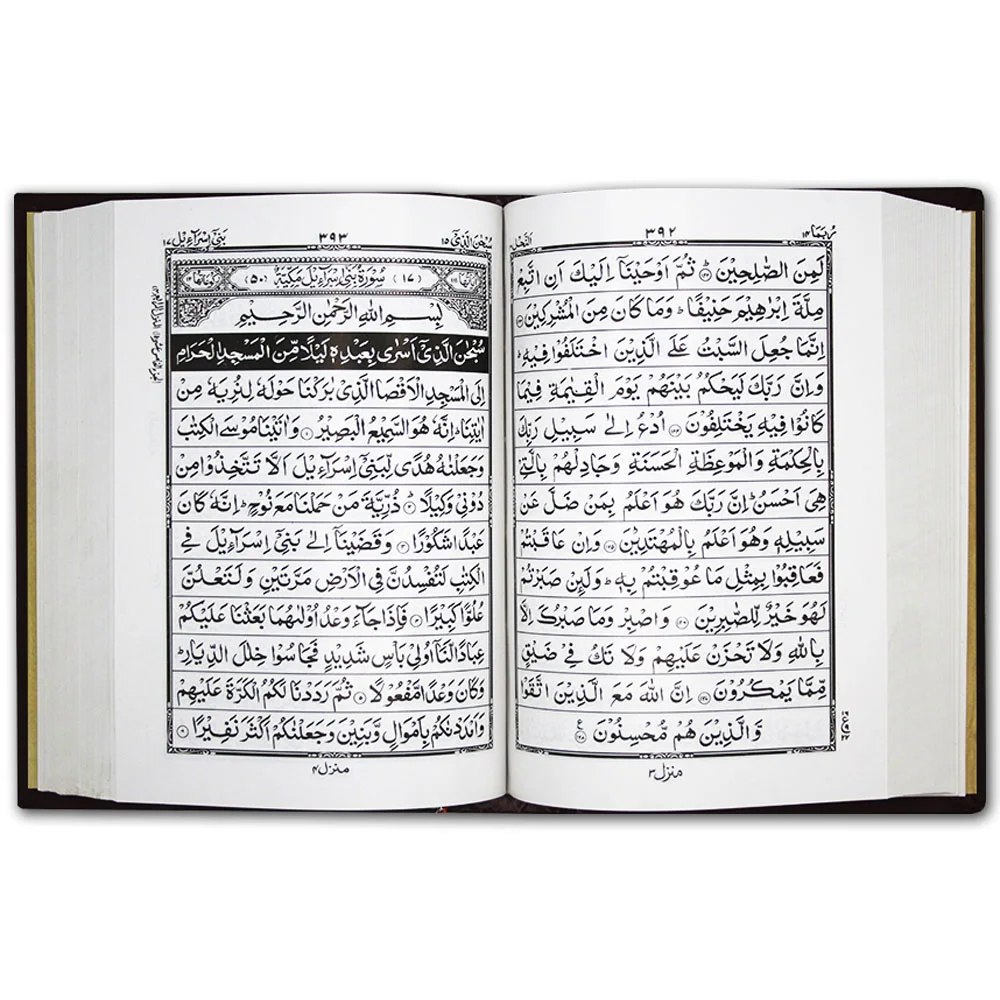 رُبَمَا ١٤
٣٩٢
النحل
لَمِنَ الصّٰلِحِيْنَ ﴿١٢٢﴾ ثُمَّ اَوْحَيْنَاۤ اِلَيْكَ اَنِ اتَّبِعْ
مِلَّةَ اِبْرٰهِيْمَ حَنِيْفًا ؕ وَمَا كَانَ مِنَ الْمُشْرِكِيْنَ ﴿١٢٣﴾
اِنَّمَا جُعِلَ السَّبْتُ عَلَى الَّذِيْنَ اخْتَلَفُوْا فِيْهِ ؕ
وَاِنَّ رَبَّكَ لَيَحْكُمُ بَيْنَهُمْ يَوْمَ الْقِيٰمَةِ فِيْمَا
كَانُوْا فِيْهِ يَخْتَلِفُوْنَ ﴿١٢٤﴾ اُدْعُ اِلٰى سَبِيْلِ رَبِّكَ
بِالْحِكْمَةِ وَالْمَوْعِظَةِ الْحَسَنَةِ وَجَادِلْهُمْ بِالَّتِيْ
هِيَ اَحْسَنُ ؕ اِنَّ رَبَّكَ هُوَ اَعْلَمُ بِمَنْ ضَلَّ عَنْ
سَبِيْلِهٖ وَهُوَ اَعْلَمُ بِالْمُهْتَدِيْنَ ﴿١٢٥﴾ وَاِنْ عَاقَبْتُمْ
فَعَاقِبُوْا بِمِثْلِ مَا عُوْقِبْتُمْ بِهٖ ؕ وَلَىِٕنْ صَبَرْتُمْ
لَهُوَ خَيْرٌ لِّلصّٰبِرِيْنَ ﴿١٢٦﴾ وَاصْبِرْ وَمَا صَبْرُكَ اِلَّا
بِاللّٰهِ وَلَا تَحْزَنْ عَلَيْهِمْ وَلَا تَكُ فِيْ ضَيْقٍ
مِّمَّا يَمْكُرُوْنَ ﴿١٢٧﴾ اِنَّ اللّٰهَ مَعَ الَّذِيْنَ اتَّقَوْا
وَّالَّذِيْنَ هُمْ مُّحْسِنُوْنَ ﴿١٢٨﴾ ع
منزل ٣
سُبْحٰنَ الَّذِيْۤ ١٥
٣٩٣
بَنِيْۤ اِسْرَآءِيْل ١٧
(١٧) سُوْرَةُ بَنِيْۤ اِسْرَآءِيْلَ مَكِّيَّةٌ (٥٠)
بِسْمِ اللّٰهِ الرَّحْمٰنِ الرَّحِيْمِ
سُبْحٰنَ الَّذِيْۤ اَسْرٰى بِعَبْدِهٖ لَيْلًا مِّنَ الْمَسْجِدِ الْحَرَامِ
اِلَى الْمَسْجِدِ الْاَقْصَا الَّذِيْ بٰرَكْنَا حَوْلَهٗ لِنُرِيَهٗ مِنْ
اٰيٰتِنَا ؕ اِنَّهٗ هُوَ السَّمِيْعُ الْبَصِيْرُ ﴿١﴾ وَاٰتَيْنَا مُوْسَى الْكِتٰبَ
وَجَعَلْنٰهُ هُدًى لِّبَنِيْۤ اِسْرَآءِيْلَ اَلَّا تَتَّخِذُوْا مِنْ
دُوْنِيْ وَكِيْلًا ﴿٢﴾ ذُرِّيَّةَ مَنْ حَمَلْنَا مَعَ نُوْحٍ ؕ اِنَّهٗ كَانَ
عَبْدًا شَكُوْرًا ﴿٣﴾ وَقَضَيْنَاۤ اِلٰى بَنِيْۤ اِسْرَآءِيْلَ فِي
الْكِتٰبِ لَتُفْسِدُنَّ فِي الْاَرْضِ مَرَّتَيْنِ وَلَتَعْلُنَّ
عُلُوًّا كَبِيْرًا ﴿٤﴾ فَاِذَا جَآءَ وَعْدُ اُوْلٰىهُمَا بَعَثْنَا عَلَيْكُمْ
عِبَادًا لَّنَاۤ اُولِيْ بَاْسٍ شَدِيْدٍ فَجَاسُوْا خِلٰلَ الدِّيَارِ ؕ
وَكَانَ وَعْدًا مَّفْعُوْلًا ﴿٥﴾ ثُمَّ رَدَدْنَا لَكُمُ الْكَرَّةَ عَلَيْهِمْ
وَاَمْدَدْنٰكُمْ بِاَمْوَالٍ وَّبَنِيْنَ وَجَعَلْنٰكُمْ اَكْثَرَ نَفِيْرًا ﴿٦﴾
منزل ٤